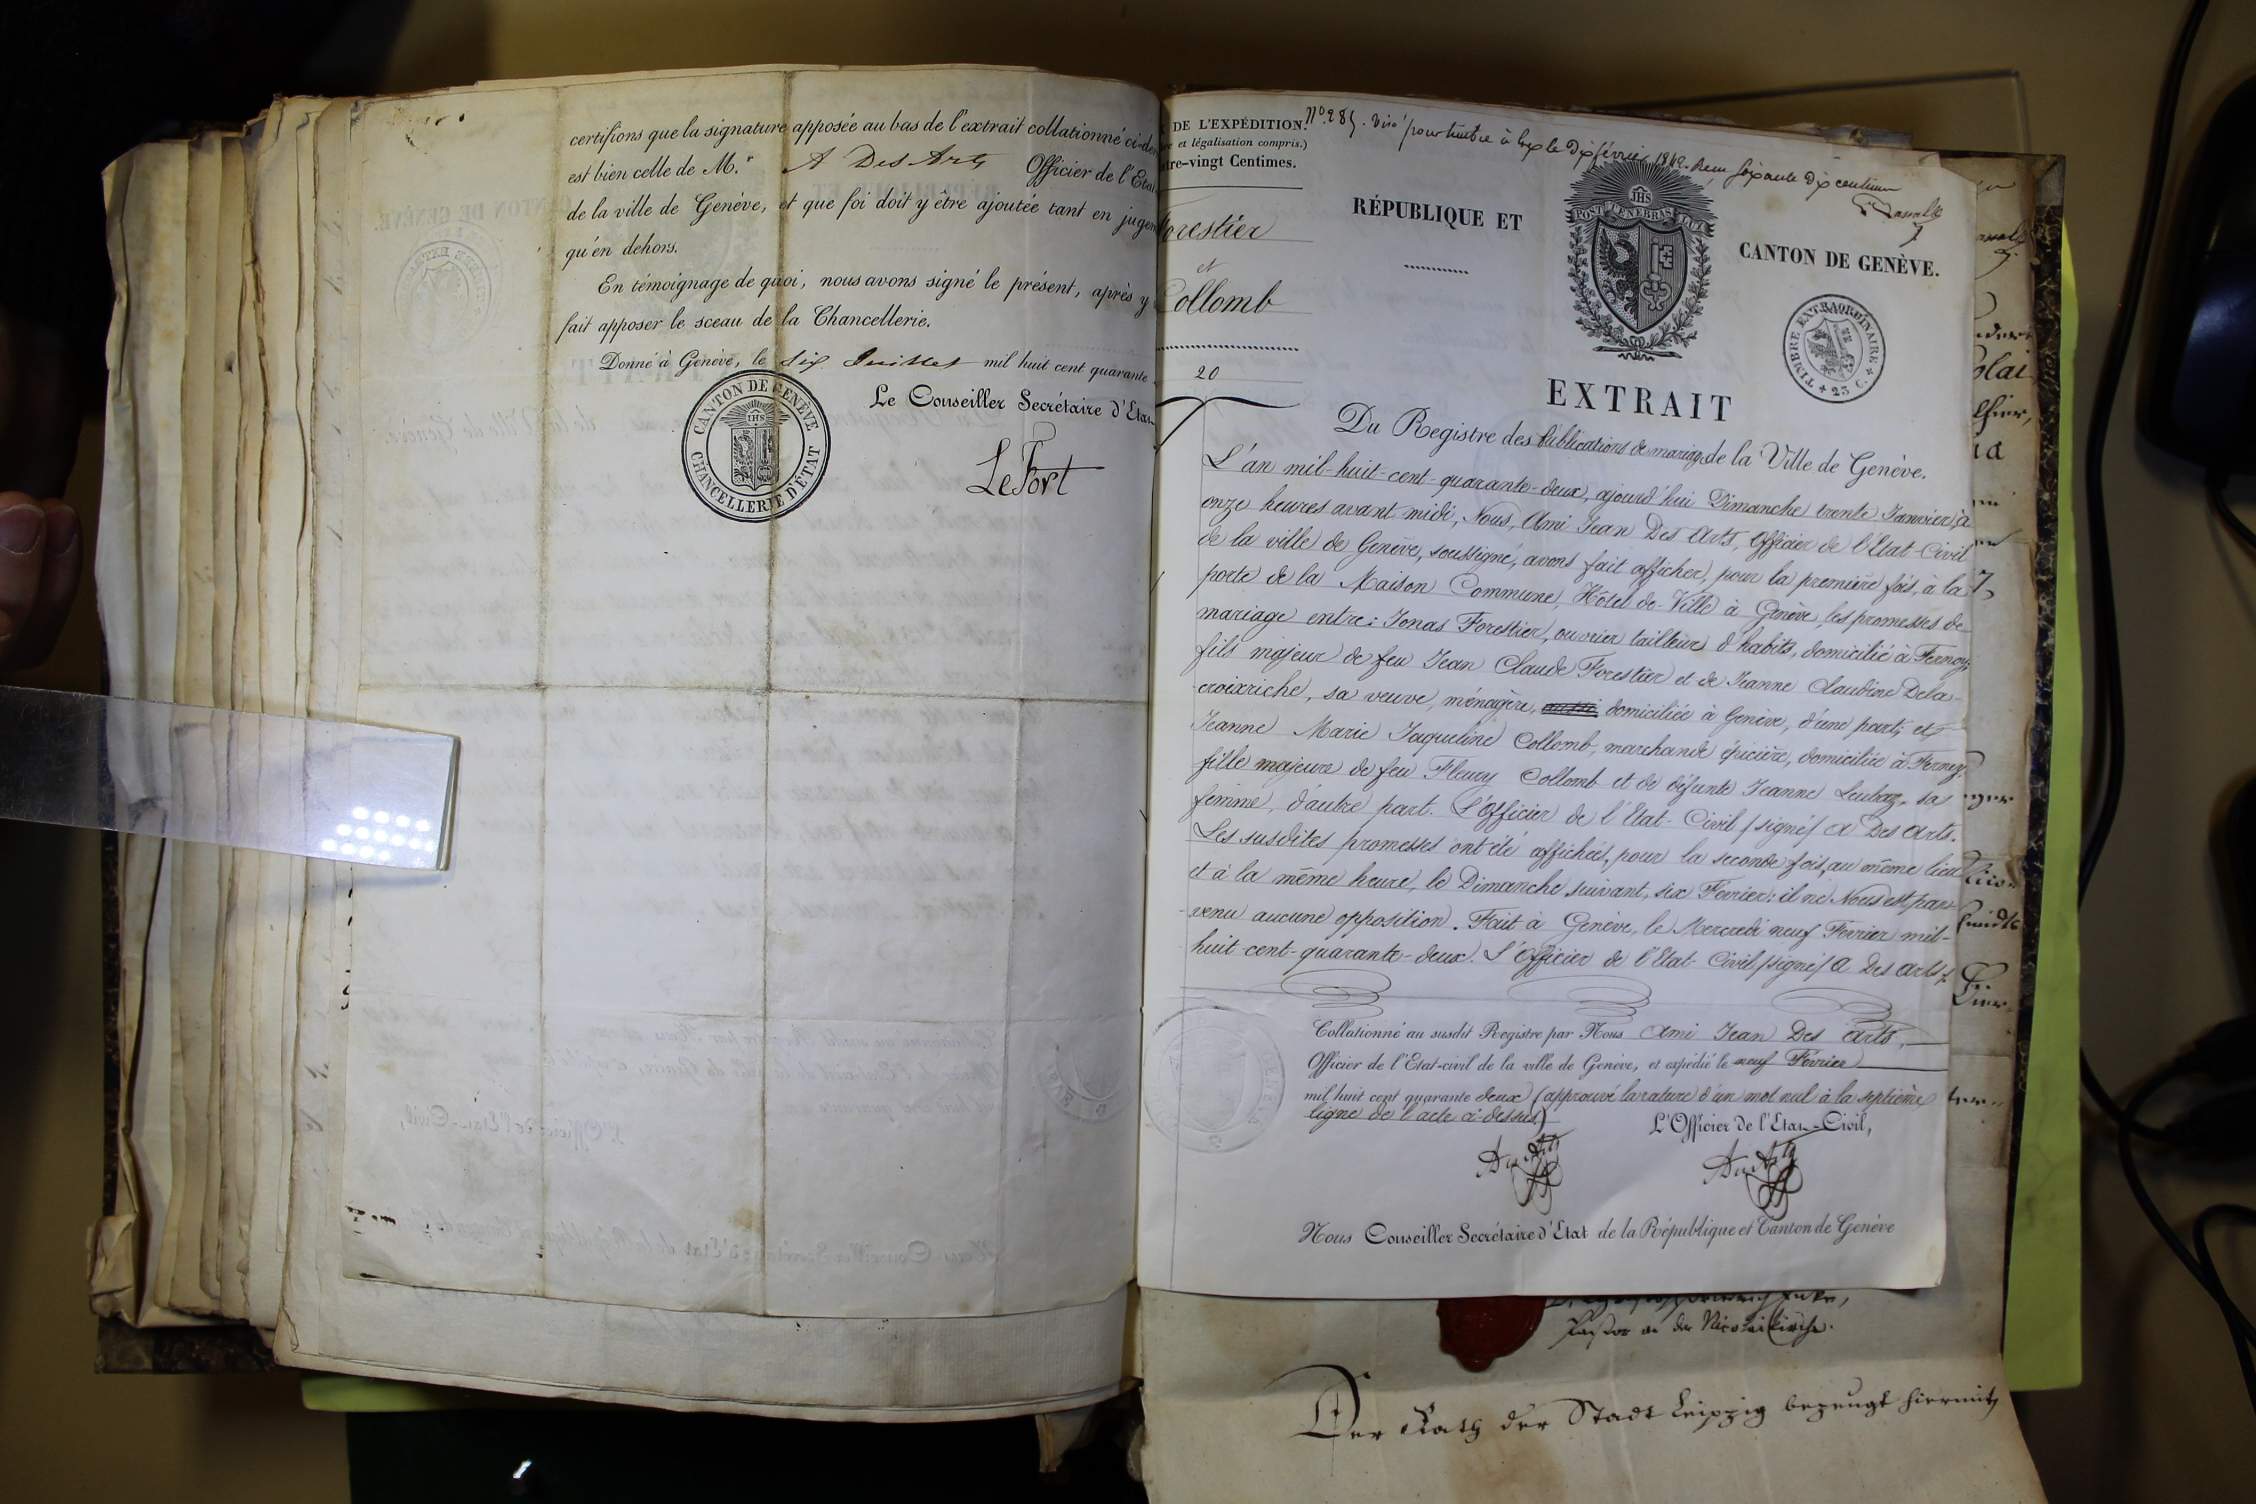 certifions que la signature apposée au bas de l'extrait collationné ci-de
est bien celle de M.r A Des Arts Officier de l'Etat
de la ville de Genève, et que foi doit y être ajoutée tant en jugem
qu'en dehors.
En témoignage de quoi, nous avons signé le présent, après y
fait apposer le sceau de la Chancellerie.
Donné à Genève, le six Juillet mil huit cent quarante
Le Conseiller Secrétaire d'Etat
CANTON DE GENÈVE
CHANCELLERIE D'ÉTAT
IHS
LeFort
DE L'EXPÉDITION.
et légalisation compris.)
tre-vingt Centimes.
orestier
et
Collomb
20
N° 285. Visé pour timbre à Gex le dix février 1842. Reçu soixante dix centimes
RÉPUBLIQUE ET
IHS
POST TENEBRAS LUX
CANTON DE GENÈVE.
TIMBRE EXTRAORDINAIRE
25 C.
EXTRAIT
Du Registre des Publications de mariage de la Ville de Genève.
L'an mil-huit-cent-quarante-deux, ajourd'hui Dimanche trente Janvier, à
onze heures avant midi, Nous, Ami Jean Des Arts, Officier de l'Etat-Civil
de la ville de Genève, soussigné, avons fait afficher, pour la première fois, à la
porte de la Maison Commune, Hôtel-de-Ville à Genève, les promesses de
mariage entre: Jonas Forestier, ouvrier tailleur d'habits, domicilié à Fernex,
fils majeur de feu Jean Claude Forestier et de Jeanne Claudine Dela-
croixriche, sa veuve, ménagère, domiciliée à Genève, d'une part; et
Jeanne Marie Jaqueline Collomb, marchande épicière, domiciliée à Fernex,
fille majeure de feu Fleury Collomb et de défunte Jeanne Leubaz, sa
femme, d'autre part. L'Officier de l'Etat-Civil /signé/ A Des Arts.
Les susdites promesses ont été affichées, pour la seconde fois, au même lieu
et à la même heure, le Dimanche suivant, six Février: il ne Nous est par-
venu aucune opposition. Fait à Genève, le Mercredi neuf Février mil-
huit-cent-quarante-deux. L'Officier de l'Etat-Civil /signé/ A Des Arts
Collationné au susdit Registre par Nous Ami Jean Des Arts,
Officier de l'Etat-civil de la ville de Genève, et expédié le neuf Février
mil huit cent quarante deux (approuvé la rature d'un mot nul à la septième
ligne de l'acte ci-dessus.)
L'Officier de l'Etat-Civil,
Nous Conseiller Secrétaire d'Etat de la République et Canton de Genève
Pastor an der Nicolaikirche.
Der Rath der Stadt Leipzig bezeugt hiermit